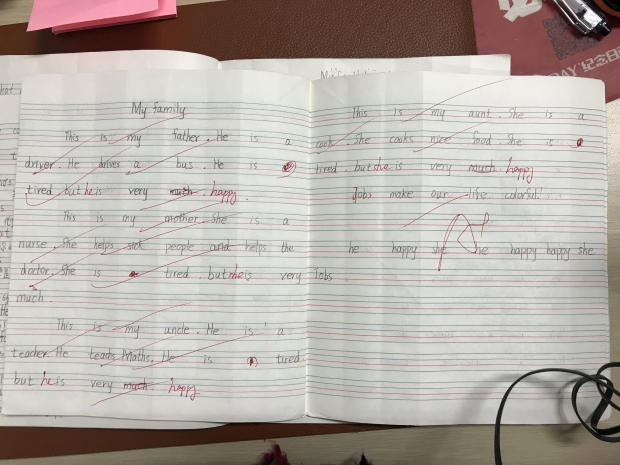 My family
This is my father. He is a
driver. He driver a bus. He is
tired but he is very much. happy.
This is my mother. She is a
nurse. She helps sick people and helps the
doctor. She is tired. but he is very Jobs
much.
This is my uncle. He is a
teacher. He teachs Maths. He is tired
but he is very much happy
This is my aunt. She is a
cook. She cooks nice food. She is
tired. but she is very much. happy
Jobs make our life colorful!
he happy she he happy happy she
DAY 纪念日